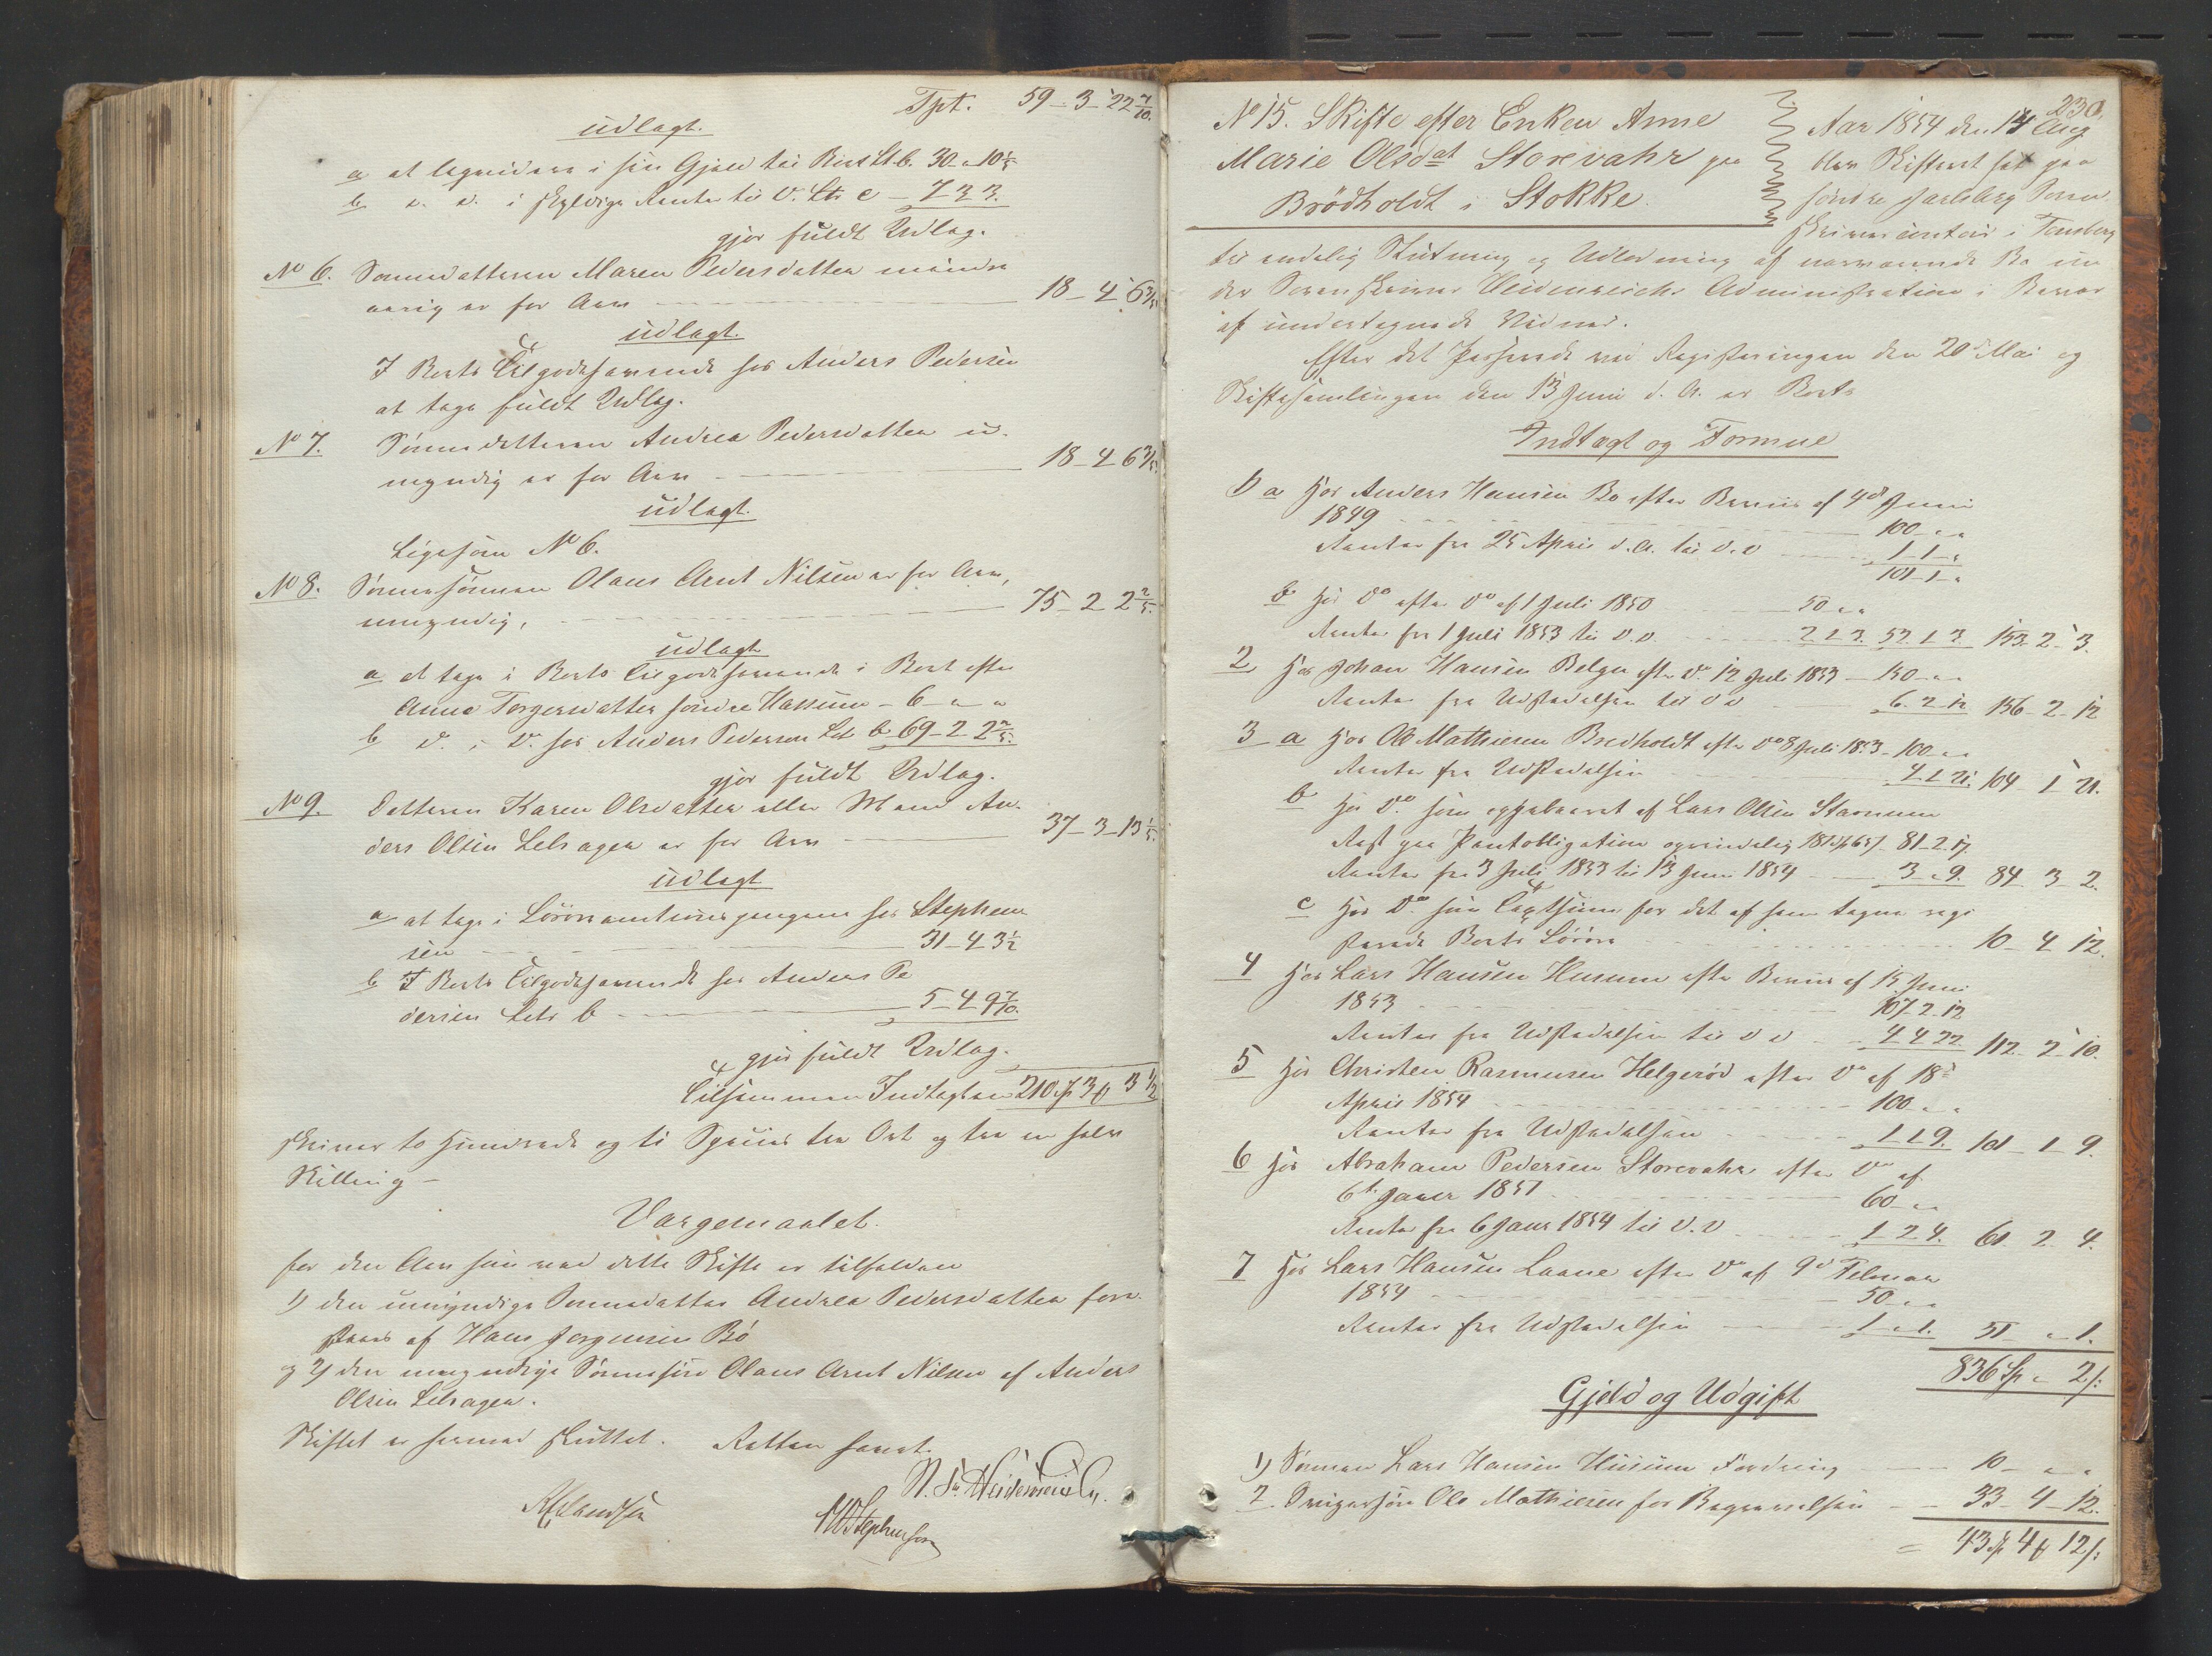 Tpt. 59 - 3 - 22 7/10.
udlagt.
a at leqvidere i sin Gjeld til Boet Lt b. 30 " 10 1/5
b d. d. i skyldige Renter til d. Ltr c - 7 3 3.
gjør fuldt Udlag.
No 6. Sønnedatteren Maren Pedersdatter mindre
aarig er for Arv 18 - 4 6 3/5
udlagt.
I Boets Tilgodehavende hos Anders Pedersen
at tage fuldt Udlag.
No 7. Sønnedatteren Andrea Pedersdatter u-
myndig er for Arv 18 - 4 6 3/5.
udlagt.
Ligesom No 6.
No 8. Sønnesønnen Olaus Arnt Nilsen er for Arv,
umyndig, 75 - 2 2 2/5.
udlagt
a at tage i Boets Tilgodehavende i Boet efter
Anne Torgersdatter søndre Hassum - 6 - " "
b d. i d. hos Anders Pedersen Lit b 69 - 2 2 2/5.
gjør fuldt Udlag.
No 9. Datteren Karen Olsdatter eller Mand An-
ders Olsen Lelsagen er for Arv 37 - 3 - 13 1/5.
udlagt
a at tage i Løsøreauctionspengene hos Stephen
sen 31 - 4 3 1/2
b I Boets Tilgodehavende hos Anders Pe
dersen Litr b 5 - 4 9 7/10.
gjør fuldt Udlag.
Tilsammen Indtagten 210 Sp 3 ß 3 1/2
skriver to Hundrede og ti Species tre Ort og tre en halv
Skilling -
Værgemaalet.
for den Arv som ved dette Skifte er tilfalden
1) den umyndige Sønnedatter Andrea Pedersdatter fore-
staaes af Hans Jørgensen Bø
og 2) den umyndige Sønnesøn Olaus Arnt Nilsen af Anders
Olsen Lelsagen.
Skiftet er hermed sluttet. Retten hævet.
N. Heidenreich.
Stephensen
230.
No 15. Skifte efter Enken Anne
Marie Olsdat Storevahr paa
Brödholdt i Stokke.
Aar 1854 den 14 Aug
blev Skifteret sat paa
søndre Jarlsberg Soren
skrivercontoir i Tønsberg
til endelig Slutning og Udlodning af nærværende Bo un
der Sorenskriver Heidenreichs Administration i Overvær
af undertegnede Vidner.
Efter det Passerede ved Registeringen den 20de Mai og
Skiftesamlingen den 13 Juni d. A. er Boets
Indtægt og Formue
1) a hos Anders Hansen Bø efter Beviis af 4de Juni
1849 100 " "
Renter fra 25 April d. A. til d.d 1 - 1 - "
101 - 1 - "
b hos do efter do af 1 Juli 1850 50 " "
Renter fra 1 Juli 1853 til d.d. 2 1 3. 52. 1 3. 153. 2 - 3.
2 hos Johan Hansen Bolgen efter do 12 Juli 1853 - 150 - " "
Renter fra Udstedelsen til d d 6. 2 - 12 156 - 2 - 12
3 a hos Ole Mathiesen Bredholdt efter do 8 Juli 1853 - 100 " "
Renter fra Udstedelsen 4 1 21. 104 1 21.
b hos do. som ophjulvaret af Lars Olsen Stamnum
Rest paa Pantobligation 81 - 2. 17.
Renter fra 3 Juli 1853 til 13 Juni 1854 3 " 9. 84 3 2.
c hos do. som for det af ham tagne regi
sterede Boets Løsøre 10 - 4 12.
4 hos Lars Hansen Husum efter Beviis af 15 Juni
1853 107. 2. 12
Renter fra Udstedelsen til d d 4 4 22. 112 - 2 10.
5 hos Christen Rasmusen Helgerød efter do af 18de
April 1854 100 " "
Renter fra Udstedelsen 1 1 9. 101 - 1 9.
6 hos Abraham Pedersen Storevahr efter do af
6te Januar 1851 60 - " "
Renter fra 6 Januar 1854 til d.d 1 2 4. 61 2 4.
7 hos Lars Hansen Laane efter do af 9de Februar
1854 50 " "
Renter fra Udstedelsen 1 " 1. 51 " 1.
836 Sp " 2 ß:
Gjeld og Udgift
1) Sønnen Lars Hansen Husum Fordring 10 - " "
2. Svigersøn Ole Mathiesen for Begravelsen 33 - 4 - 12.
= 43 Sp 4 ß 12 ß: